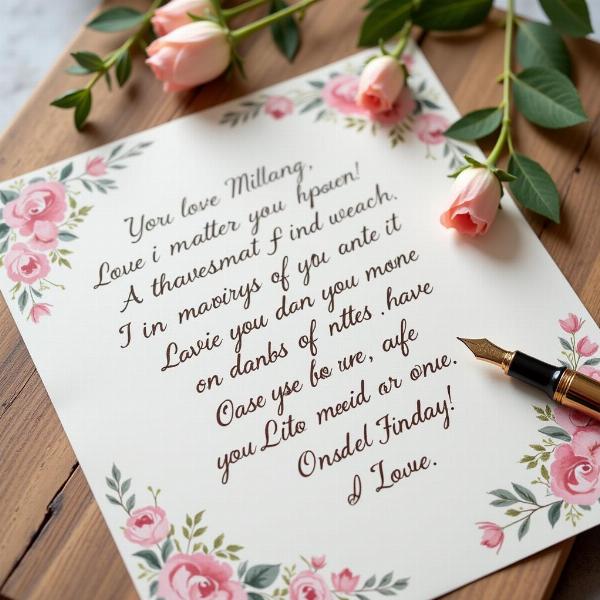 You love Millang,
Love i matter you hpswen!
A thavesmat f ind weach.
I in mavirys of you ante it
Lavie you dan you mone
on danbs of nttes . have
Oase yse bo ure, aufe
you Lito meeid ar onue.
Onsdel Finday!
I Loue.